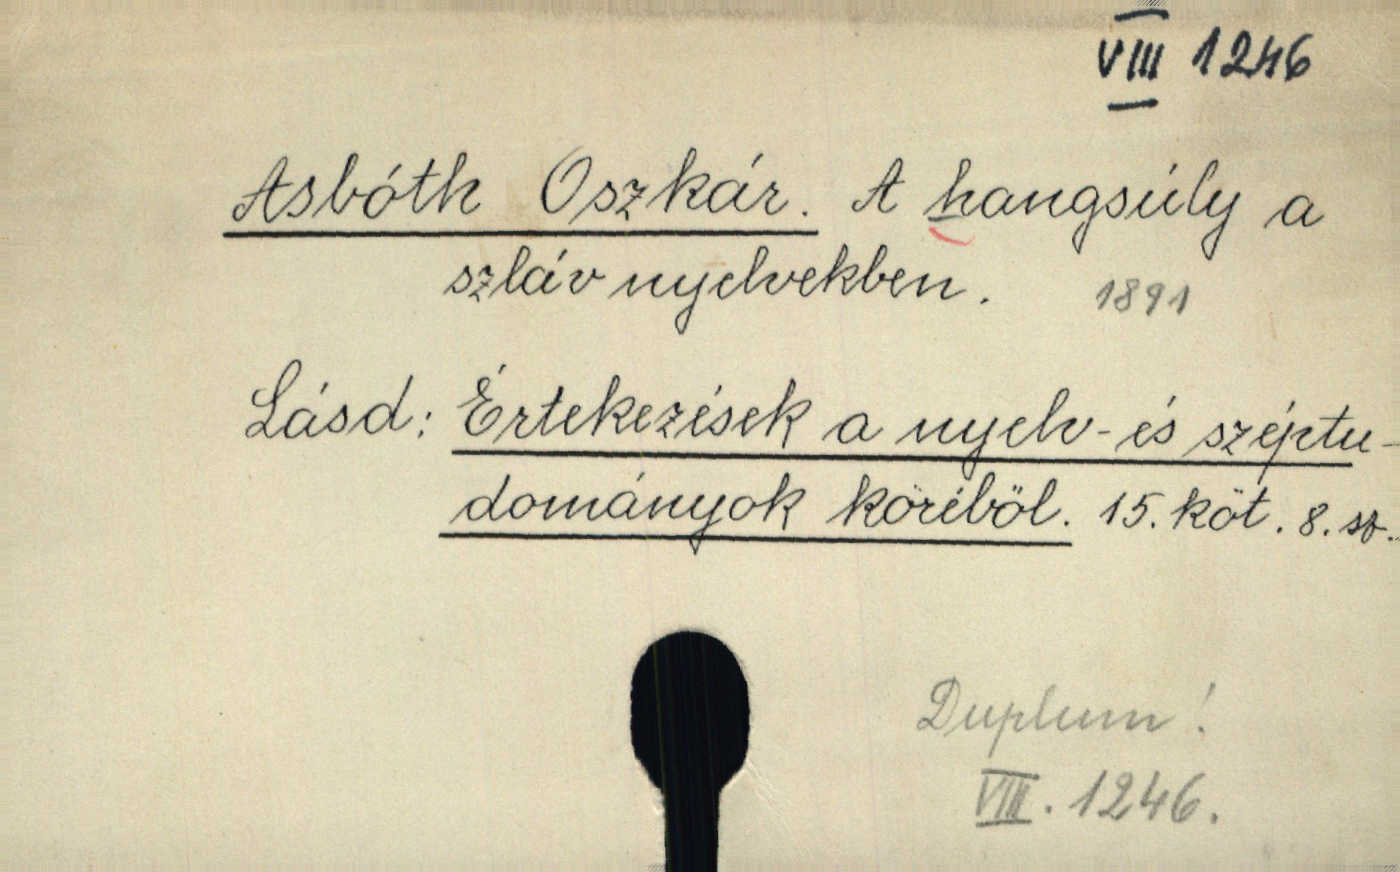 VIII 1246
Asbóth Oszkár. A hangsúly a
szláv nyelvekben. 1891
Lásd: Értekezések a nyelv- és széptu-
dományok köréböl. 15. köt. 8. sz.
Duplum!
VIII. 1246.